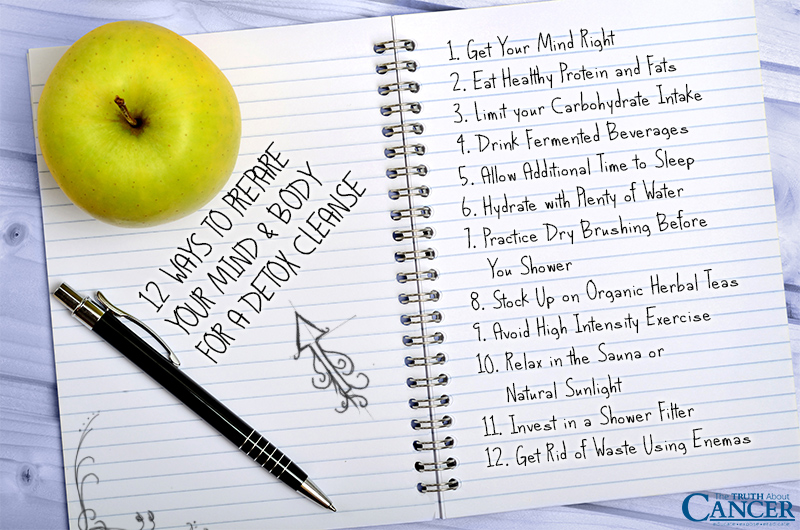 12 WAYS TO PREPARE
YOUR MIND & BODY
FOR A DETOX CLEANSE
1. Get Your Mind Right
2. Eat Healthy Protein and Fats
3. Limit your Carbohydrate Intake
4. Drink Fermented Beverages
5. Allow Additional Time to Sleep
6. Hydrate with Plenty of Water
7. Practice Dry Brushing Before
You Shower
8. Stock Up on Organic Herbal Teas
9. Avoid High Intensity Exercise
10. Relax in the Sauna or
Natural Sunlight
11. Invest in a Shower Filter
12. Get Rid of Waste Using Enemas
The TRUTH About
CANCER